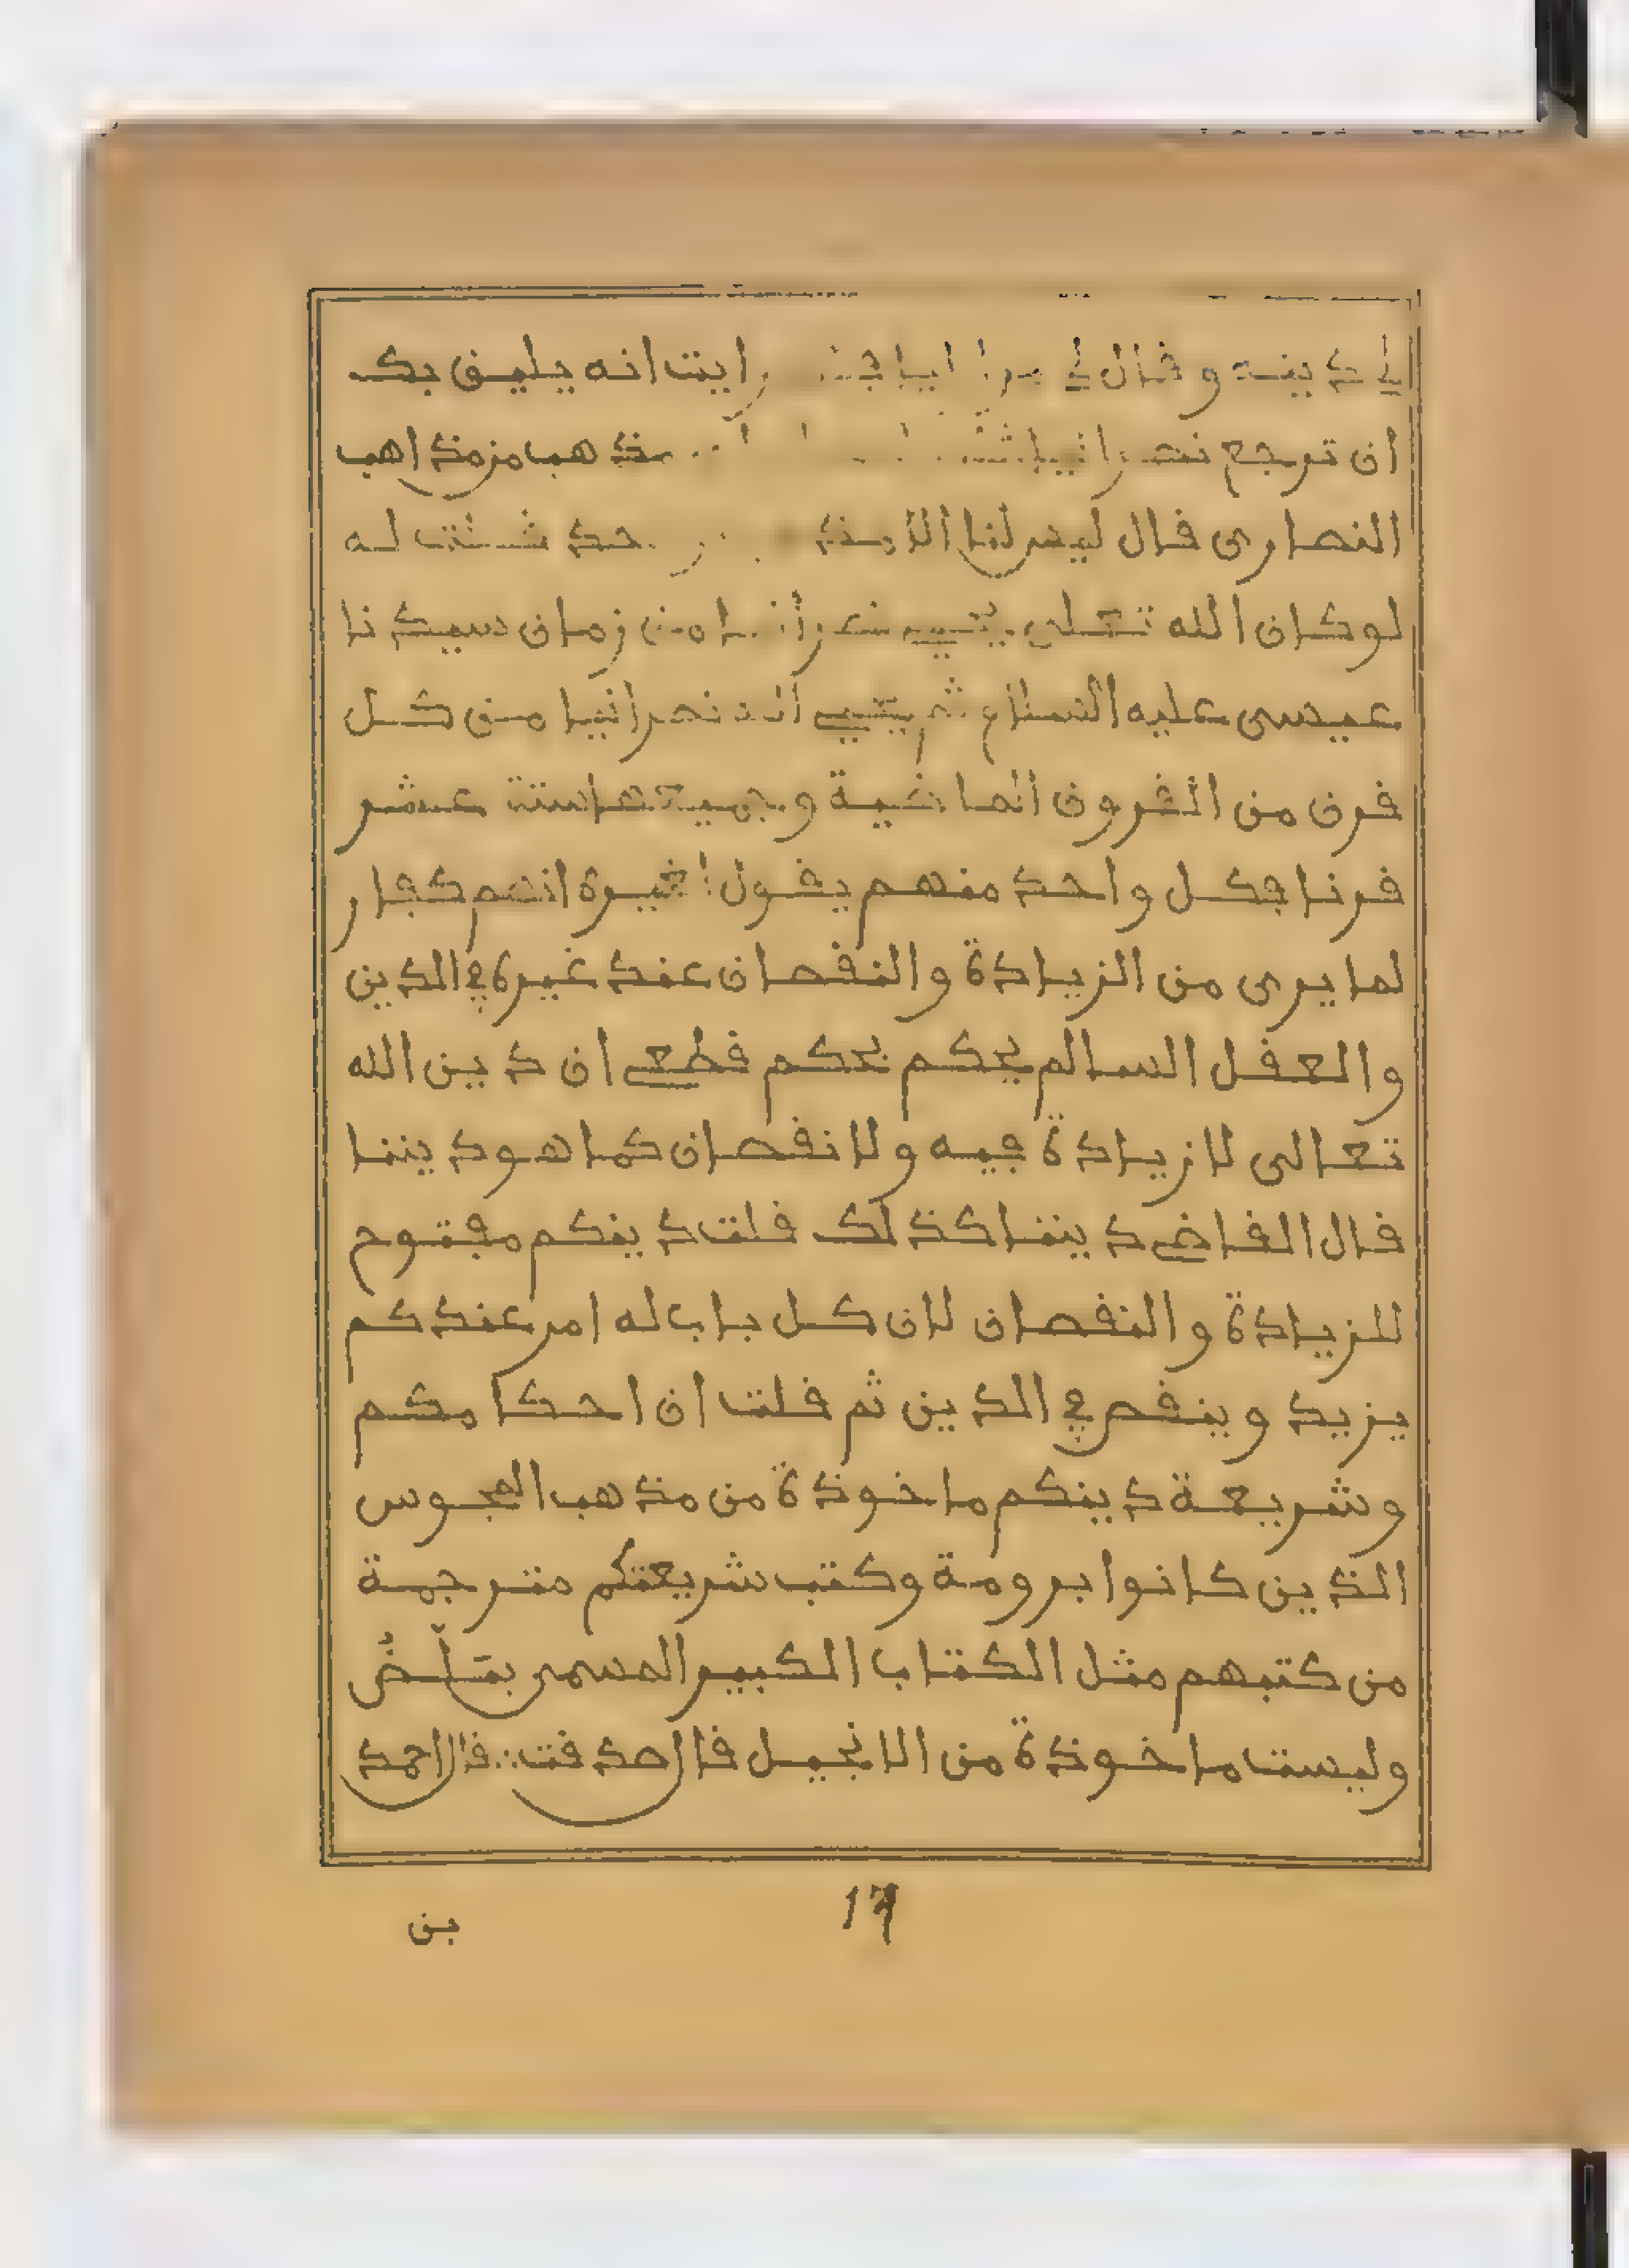 لي دينه وقال لي رايت انه يليق بك
ان ترجع نصرانيا مذهب من مذاهب
النصارى قال ليس لنا الا حد قلت له
لو كان الله من زمان سيدنا
عيسى عليه السلام ثم نصرانيا من كل
قرن من القرون الماضية وجميعها ستة عشر
قرنا فكل واحد منهم يقول لغيره انهم كفار
لما يرى من الزيادة والنقصان عند غيره في الدين
والعقل السالم يحكم بحكم قطعي ان دين الله
تعالى لا زيادة فيه ولا نقصان كما هو ديننا
قال القاضي ديننا كذلك قلت دينكم مفتوح
للزيادة والنقصان لان كل باب له امر عندكم
يزيد وينقص في الدين ثم قلت ان احكامكم
وشريعة دينكم ماخوذة من مذهب المجوس
الذين كانوا برومة وكتب شريعتكم مترجمة
من كتبهم مثل الكتاب الكبير المسمى
وليست ماخوذة من الانجيل قال صدقت قال احمد
17
بن